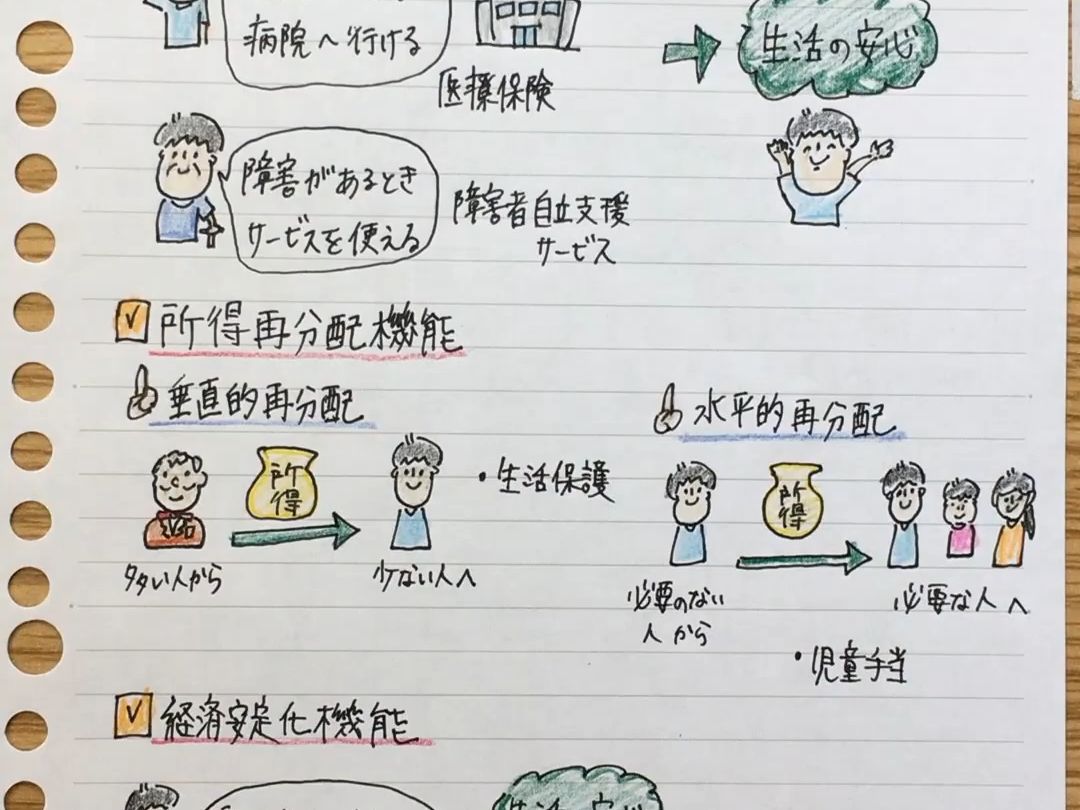 病院へ行ける
医療保険
生活の安心
障害があるとき
サービスを使える
障害者自立支援
サービス
所得再分配機能
垂直的再分配
所得
多い人から
少ない人へ
・生活保護
水平的再分配
所得
必要のない
人から
必要な人へ
・児童手当
経済安定化機能